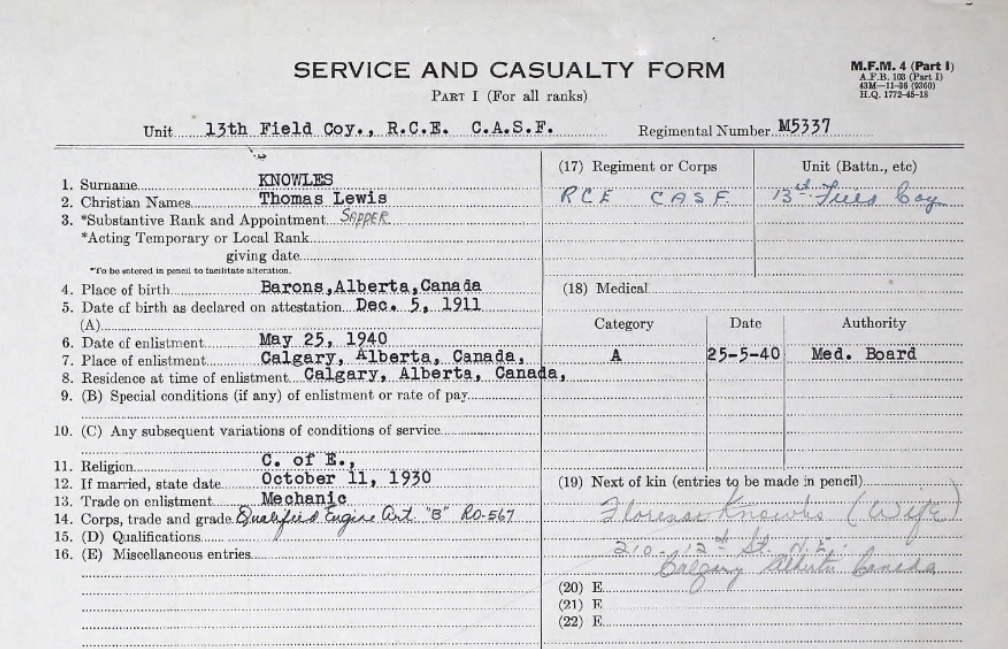 SERVICE AND CASUALTY FORM
PART I (For all ranks)
M.F.M. 4 (Part I)
A.F.B. 103 (Part I)
43M—11-36 (9360)
H.Q. 1772-45-18
Unit 13th Field Coy., R.C.E. C.A.S.F. Regimental Number M5337
1. Surname KNOWLES
2. Christian Names Thomas Lewis
3. *Substantive Rank and Appointment SAPPER
*Acting Temporary or Local Rank
giving date
*To be entered in pencil to facilitate alteration.
4. Place of birth Barons,Alberta,Canada
5. Date of birth as declared on attestation Dec. 5, 1911
(A)
6. Date of enlistment May 25, 1940
7. Place of enlistment Calgary, Alberta, Canada,
8. Residence at time of enlistment Calgary, Alberta, Canada,
9. (B) Special conditions (if any) of enlistment or rate of pay
10. (C) Any subsequent variations of conditions of service
11. Religion C. of E.,
12. If married, state date October 11, 1930
13. Trade on enlistment Mechanic
14. Corps, trade and grade Qualified Engine Art. "B" RO-567
15. (D) Qualifications
16. (E) Miscellaneous entries
(17) Regiment or Corps Unit (Battn., etc)
RCE CASF 13th Coy
(18) Medical
Category Date Authority
A 25-5-40 Med. Board
(19) Next of kin (entries to be made in pencil)
Florence Knowles (Wife)
210-12th St. N.E.
Calgary Alberta Canada
(20) E
(21) E
(22) E